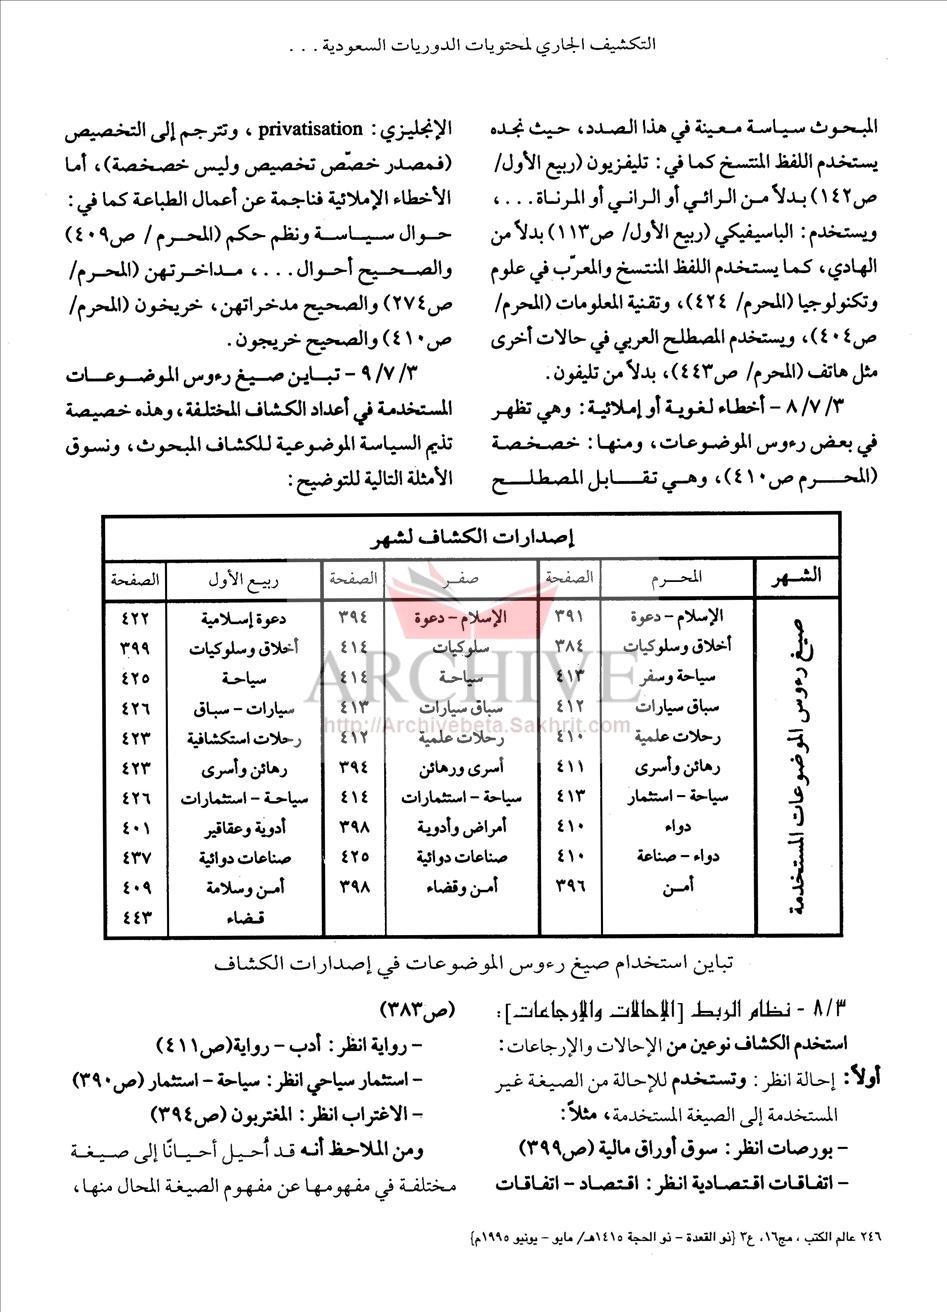 التكشيف الجاري لمحتويات الدوريات السعودية . . .
المبحوث سياسة معينة في هذا الصدد، حيث نجده
يستخدم اللفظ المنتسخ كما في : تليفزيون (ربيع الأول/
ص١٤٢) بدلاً من الرائي أو الراني أو المرناة . . . ،
ويستخدم : الباسيفيكي (ربيع الأول/ ص١١٣) بدلاً من
الهادي، كما يستخدم اللفظ المنتسخ والمعرّب في علوم
وتكنولوجيا (المحرم/ ٤٢٤)، وتقنية المعلومات (المحرم/
ص٤٠٤)، ويستخدم المصطلح العربي في حالات أخرى
مثل هاتف (المحرم/ ص٤٤٣)، بدلاً من تليفون.
٨/٧/٣ - أخطاء لغوية أو إملائية : وهي تظهر
في بعض رءوس الموضوعات، ومنها : خصخصة
(المحرم ص٤١٠)، وهي تقابل المصطلح
الإنجليزي : privatisation ، وتترجم إلى التخصيص
(فمصدر خصّص تخصيص وليس خصخصة)، أما
الأخطاء الإملائية فناجمة عن أعمال الطباعة كما في :
حوال سياسة ونظم حكم (المحرم / ص٤٠٩)
والصحيح أحوال . . . ، مداخرتهن (المحرم/
ص٢٧٤) والصحيح مدخراتهن، خريخون (المحرم/
ص٤١٠) والصحيح خريجون .
٩/٧/٣ - تباين صيغ رءوس الموضوعات
المستخدمة في أعداد الكشاف المختلفة، وهذه خصيصة
تذيم السياسة الموضوعية للكشاف المبحوث، ونسوق
الأمثلة التالية للتوضيح :
إصدارات الكشاف لشهر
الشهر المحرم الصفحة صفر الصفحة ربيع الأول الصفحة
صيغ رءوس الموضوعات المستخدمة
الإسلام - دعوة ٣٩١ الإسلام - دعوة ٣٩٤ دعوة إسلامية ٤٢٢
أخلاق وسلوكيات ٣٨٤ سلوكيات ٤١٤ أخلاق وسلوكيات ٣٩٩
سياحة وسفر ٤١٣ سياحة ٤١٤ سياحة ٤٢٥
سباق سيارات ٤١٢ سباق سيارات ٤١٣ سيارات - سباق ٤٢٦
رحلات علمية ٤١٠ رحلات علمية ٤١٢ رحلات استكشافية ٤٢٣
رهائن وأسرى ٤١١ أسرى ورهائن ٣٩٤ رهائن وأسرى ٤٢٣
سياحة - استثمار ٤١٣ سياحة - استثمارات ٤١٤ سياحة - استثمارات ٤٢٦
دواء ٤١٠ أمراض وأدوية ٣٩٨ أدوية وعقاقير ٤٠١
دواء - صناعة ٤١٠ صناعات دوائية ٤٢٥ صناعات دوائية ٤٣٧
أمن ٣٩٦ أمن وقضاء ٣٩٨ أمن وسلامة ٤٠٩
قضاء ٤٤٣
ARCHIVE
http://Archivebeta.Sakhrit.com
تباين استخدام صيغ رءوس الموضوعات في إصدارات الكشاف
٨/٣ - نظام الربط [الإحالات والإرجاعات] :
استخدم الكشاف نوعين من الإحالات والإرجاعات :
أولاً : إحالة انظر : وتستخدم للإحالة من الصيغة غير
المستخدمة إلى الصيغة المستخدمة، مثلاً :
- بورصات انظر : سوق أوراق مالية (ص٣٩٩)
- اتفاقات اقتصادية انظر : اقتصاد - اتفاقات
(ص٣٨٣)
- رواية انظر : أدب - رواية(ص٤١١)
- استثمار سياحي انظر : سياحة - استثمار (ص٣٩٠)
- الاغتراب انظر : المغتربون (ص٣٩٤)
ومن الملاحظ أنه قد أحيل أحيانًا إلى صيغة
مختلفة في مفهومها عن مفهوم الصيغة المحال منها،
٢٤٦ عالم الكتب ، مج١٦، ع٣ {ذو القعدة - ذو الحجة ١٤١٥هـ/ مايو - يونيو ١٩٩٥م}